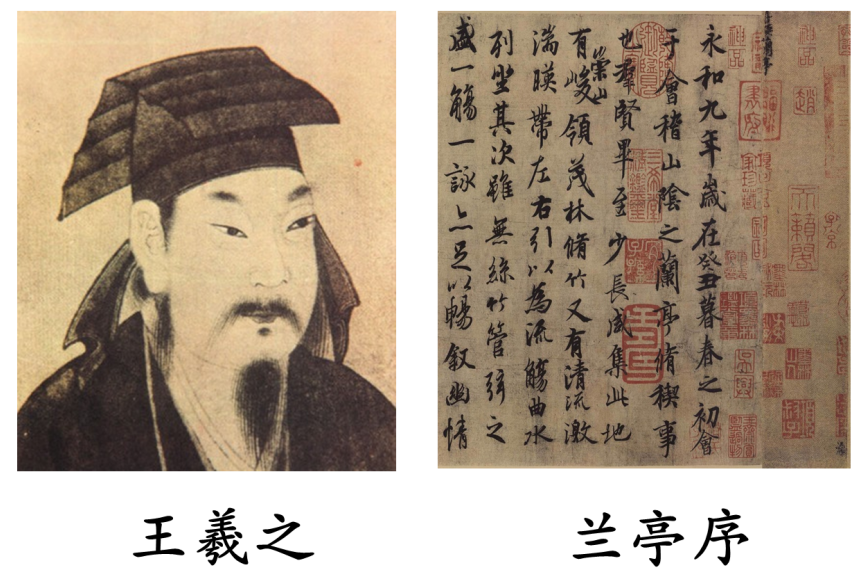 永和九年歲在癸丑暮春之初會
于會稽山陰之蘭亭脩稧事
也羣賢畢至少長咸集此地
有崇山峻領茂林脩竹又有清流激
湍暎帶左右引以為流觴曲水
列坐其次雖無絲竹管弦之
盛一觴一詠亦足以暢敘幽情
神品
趙
天籟閣
王羲之
兰亭序